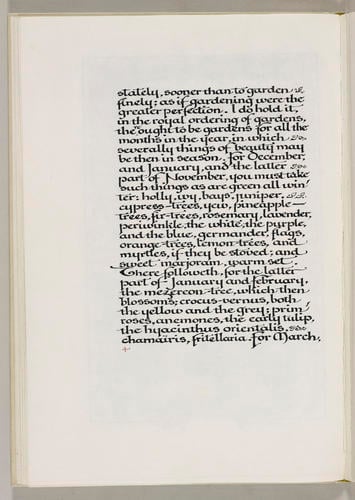 stately, sooner than to garden
finely; as if gardening were the
greater perfection. I do hold it,
in the royal ordering of gardens,
the ought to be gardens for all the
months in the year, in which
severally things of beauty may
be then in season. For December,
and January, and the latter
part of November, you must take
such things as are green all win
ter: holly, ivy, bays, juniper,
cypress-trees, yew, pineapple-
trees, fir-trees, rosemary, lavender,
periwinkle, the white, the purple,
and the blue, germander, flags,
orange-trees, lemon-trees, and
myrtles, if they be stoved; and
sweet marjoram, warm set.
There followeth, for the latter
part of January and February,
the mezereon-tree, which then
blossoms; crocus vernus, both
the yellow and the grey; prim
roses, anemones, the early tulip,
the hyacinthus orientalis,
chamaïris, fritellaria. For March,